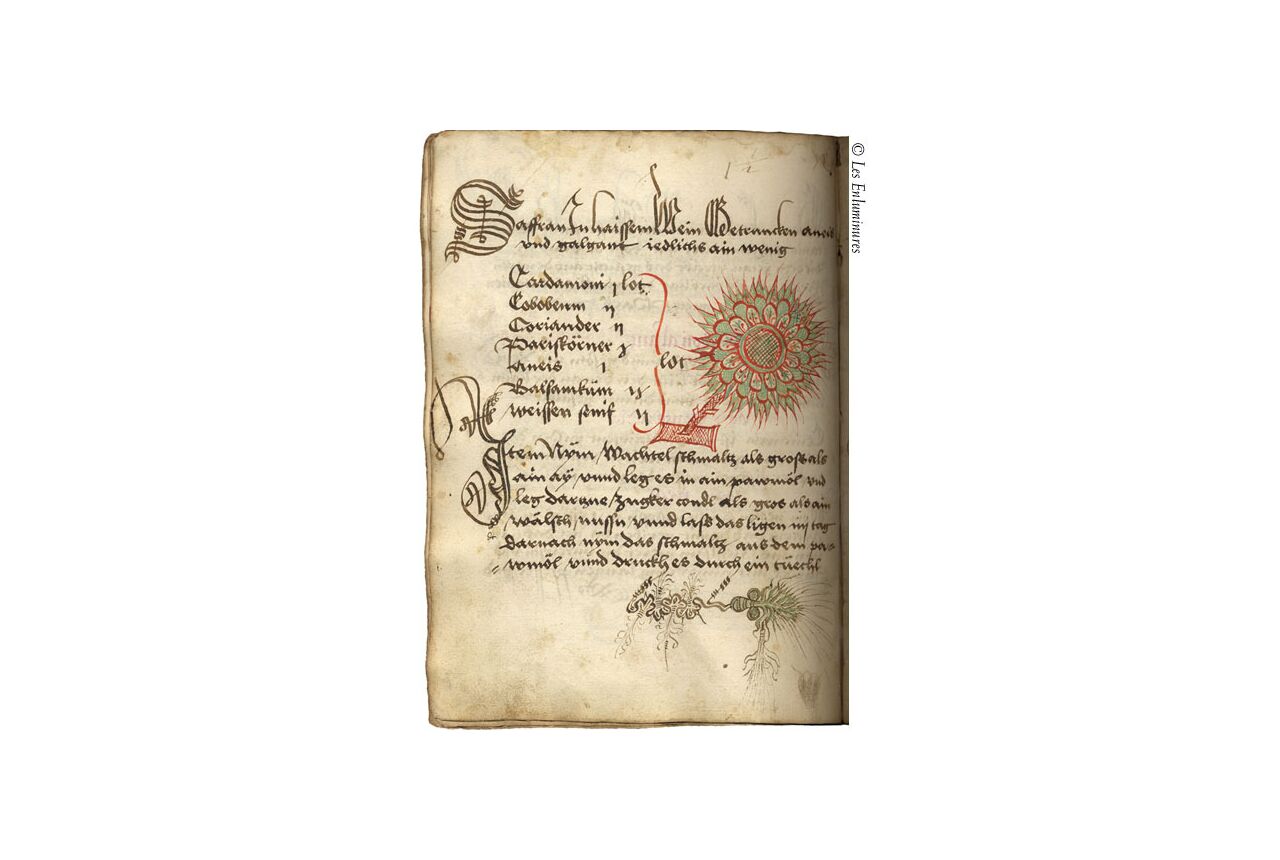 Saffran In haissem Wein Getruncken aneis
vnd galgant iedlichs ain wenig
Cardamomi j lot
Cobobenm ij
Coriander ij
Pariskörner j
lot
Aneis j
Balsamküm ij
weissen senif ij
Item Nÿm Wachtel schmaltz als gross als
ain aÿ vnnd leg es in ain pawmöl vnd
leg darzue zugker condl als gros als ain
wälsch nussn vnnd lass das ligen iiij tag
darnach nÿm das schmaltz aus dem pa=
wmöl vnnd druckh es durch ein tüechl
© Les Enluminures